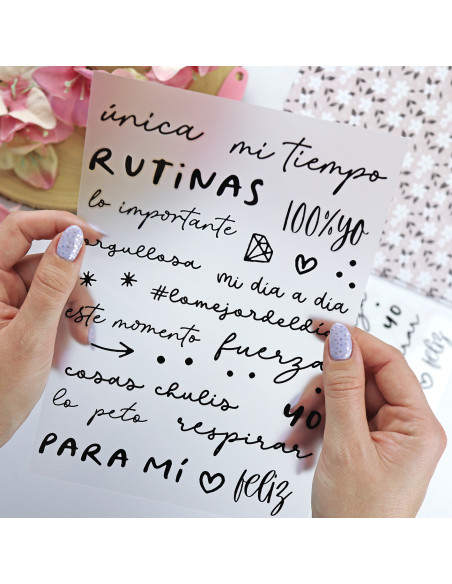 única mi tiempo
RUTiNAS
lo importante 100%yo
orgullosa mi dia a dia
#lomejordeldia
este momento fuerza
cosas chulis yo
lo peto respirar
PARA MÍ feliz
yo
feliz